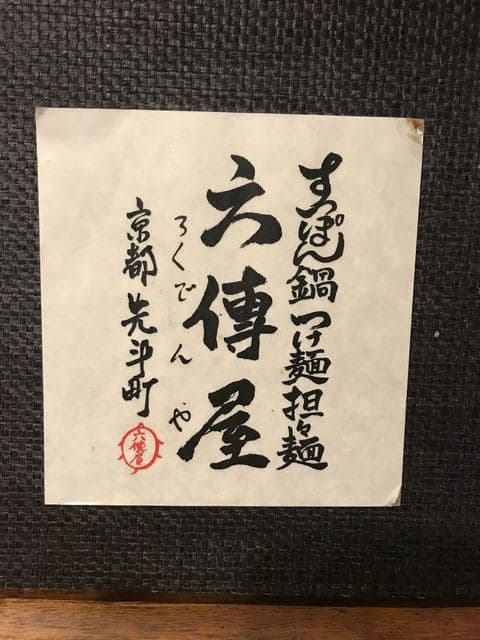 すっぽん鍋つけ麺担々麺
六傳屋
ろくでんや
京都先斗町
六傳屋